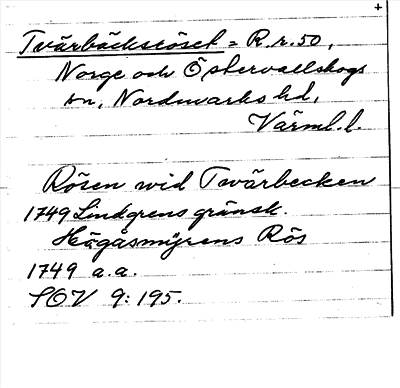 +
Tvärbäcksröset = R.r.50,
Norge och Östervallskogs
sn, Nordmarks hd,
Värml. l.
Rösen wid Twärbecken
1749 Lindgrens gränsk.
Hägåsmÿrens Rös
1749 a.a.
SOV 9:195.